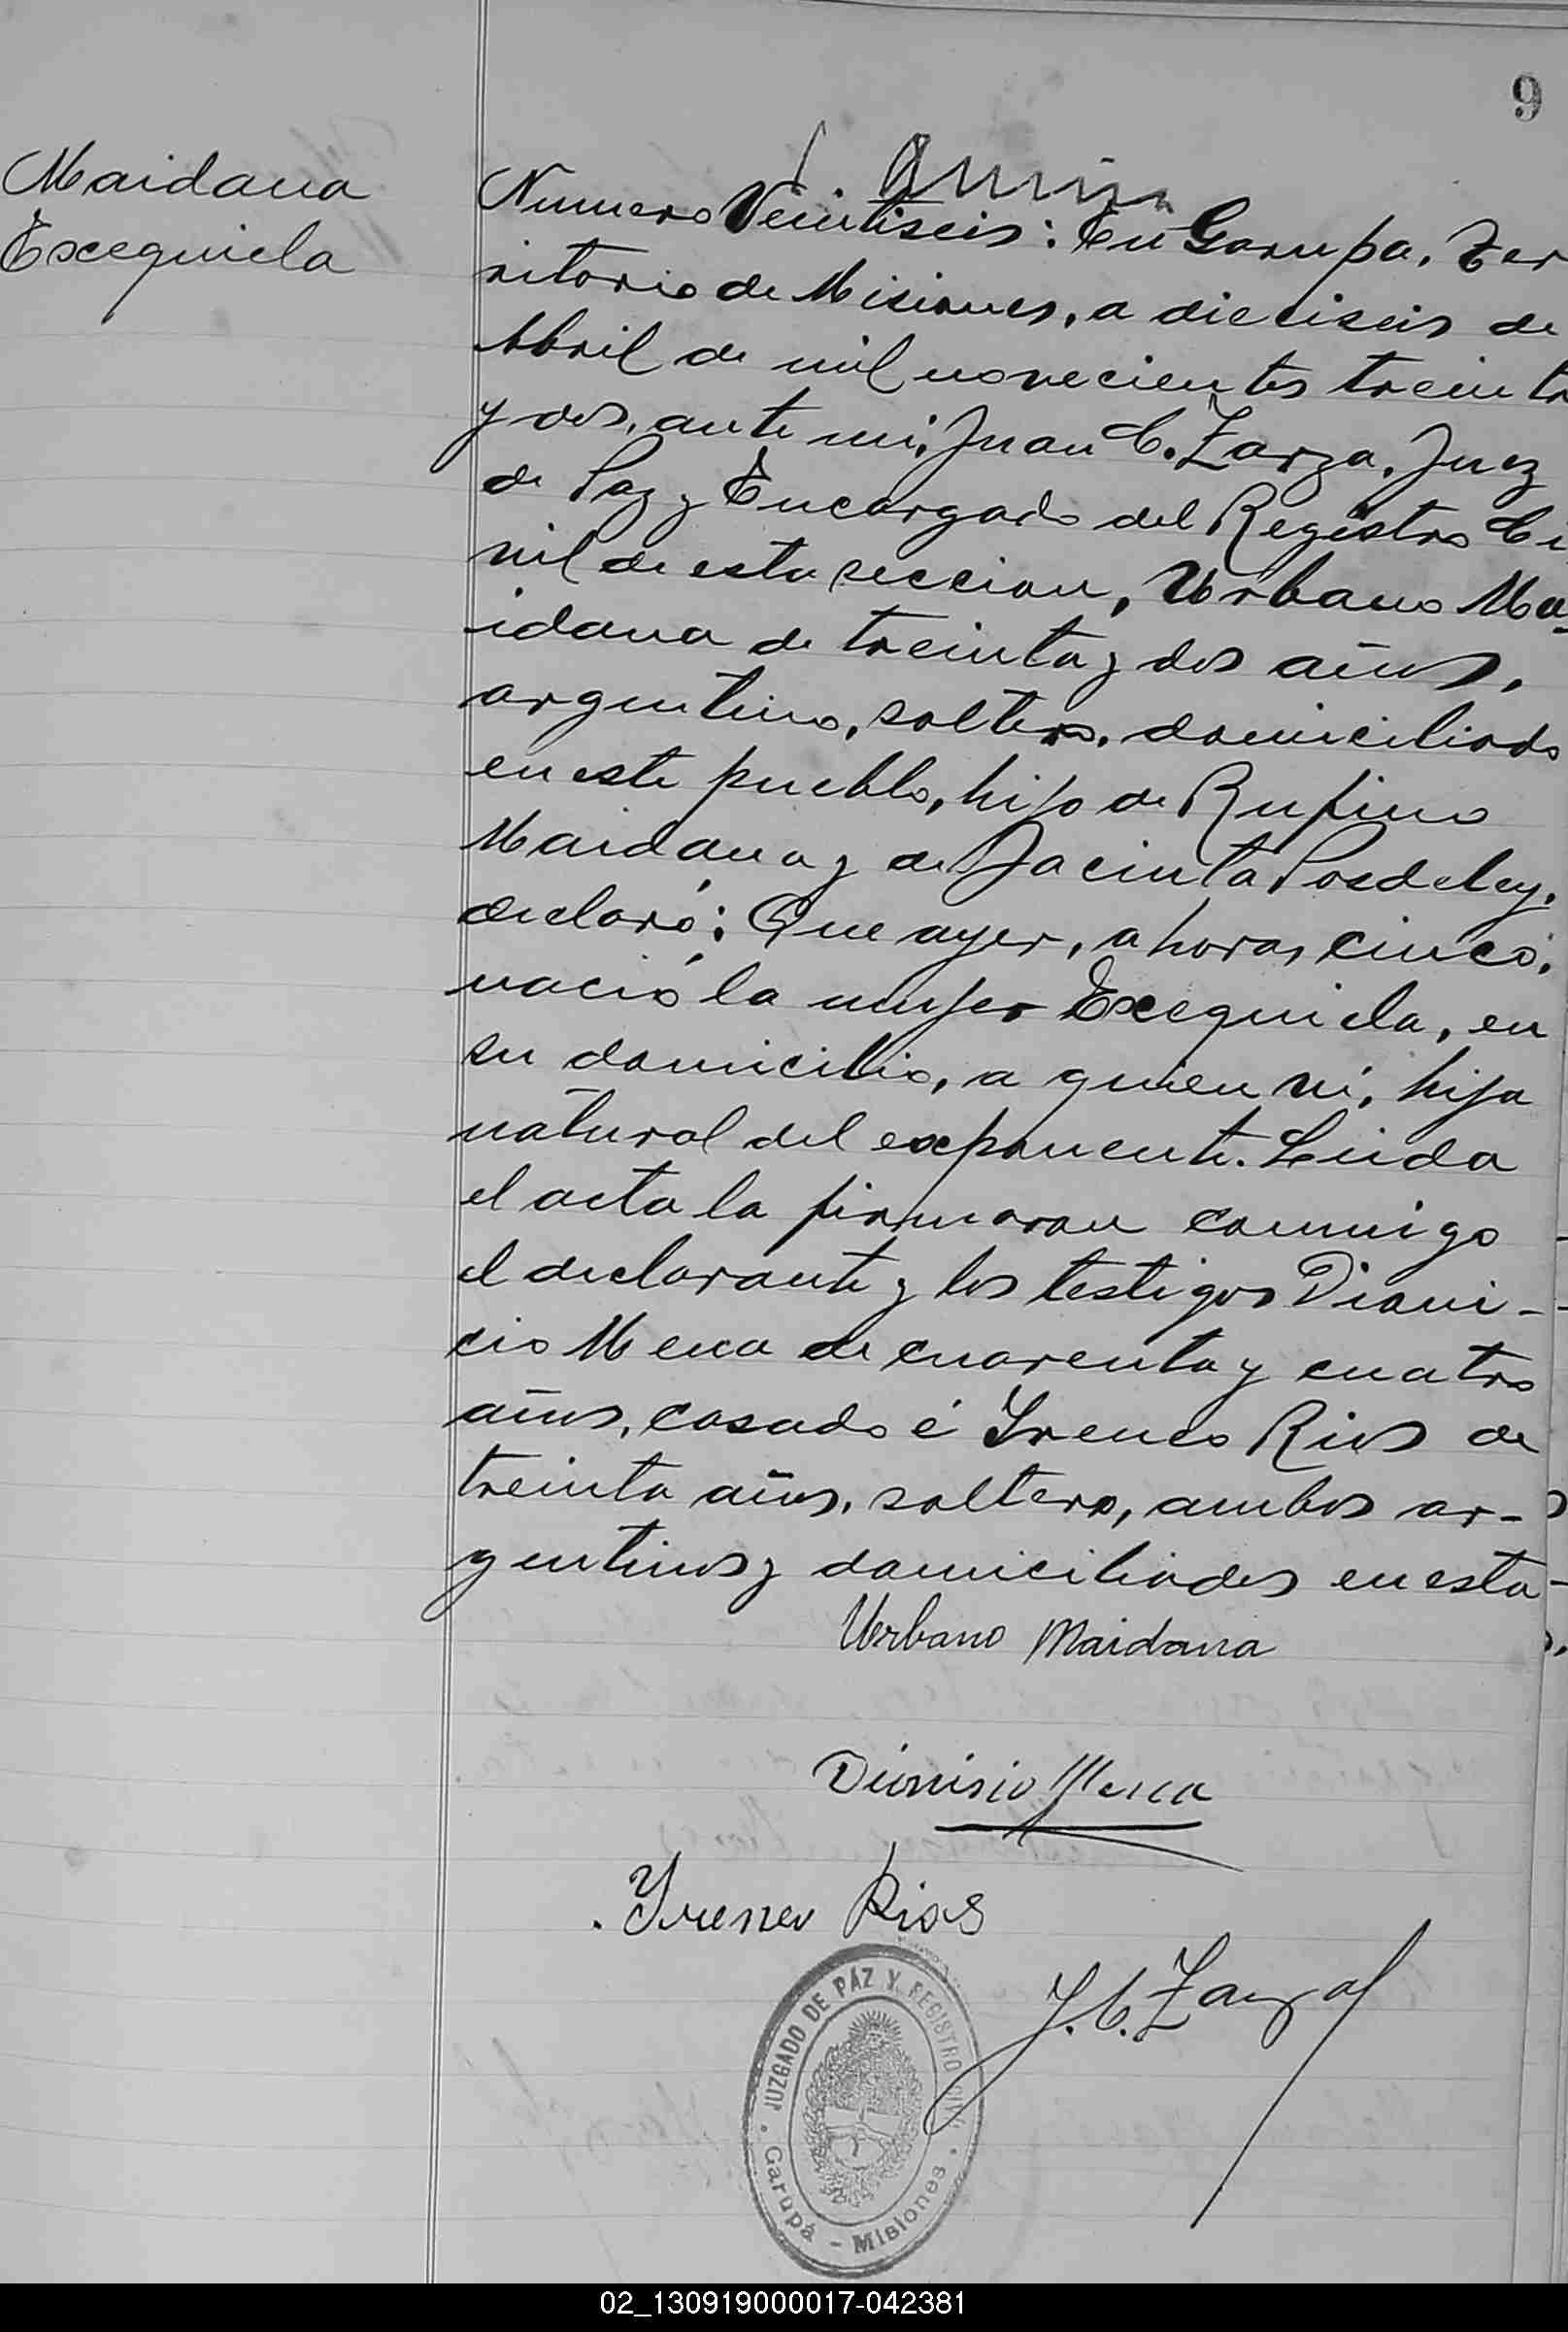 9
Maidana
Exequiela
Numero Veintiseis: En Garupa, Ter
ritorio de Misiones, a dieciseis de
Abril de mil novecientos treinta
y dos, ante mi, Juan C. Zarza, Juez
de Paz y Encargado del Registro Ci
vil de esta seccion, Urbano Ma-
idana de treinta y dos años,
argentino, soltero, domiciliado
en este pueblo, hijo de Rufino
Maidana y de Jacinta Posdeley,
declaró: Que ayer, a horas cinco,
nació la mujer Exequiela, en
su domicilio, a quien vi, hija
natural del exponente. Leida
el acta la firmaron conmigo
el declarante y los testigos Dioni-
cio Mena de cuarenta y cuatro
años, casado é Yreneo Rios de
treinta años, soltero, ambos ar-
gentinos y domiciliados en esta
Urbano Maidana
Dionisio Mena
Yreneo Rios
J. C. Zarza
JUZGADO DE PAZ Y REGISTRO CIVIL
Garupá - Misiones
02_130919000017-042381